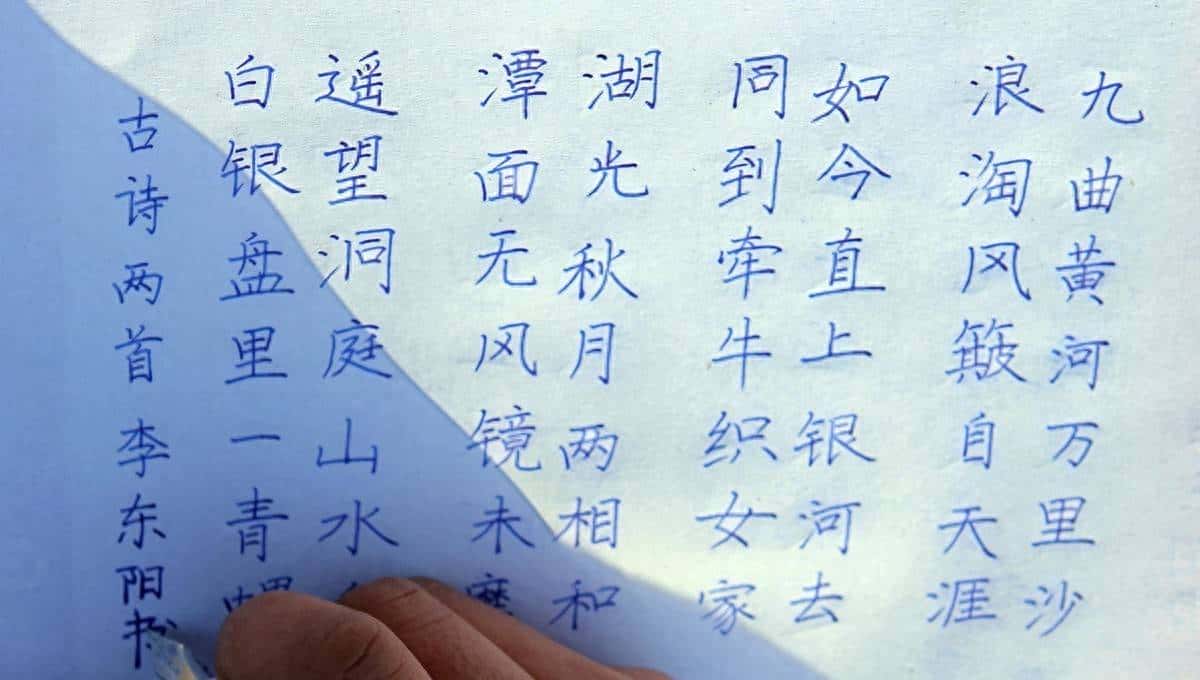 九曲黄河万里沙
浪淘风簸自天涯
如今直上银河去
同到牵牛织女家
湖光秋月两相和
潭面无风镜未磨
遥望洞庭山水
白银盘里一青螺
古诗两首李东阳书